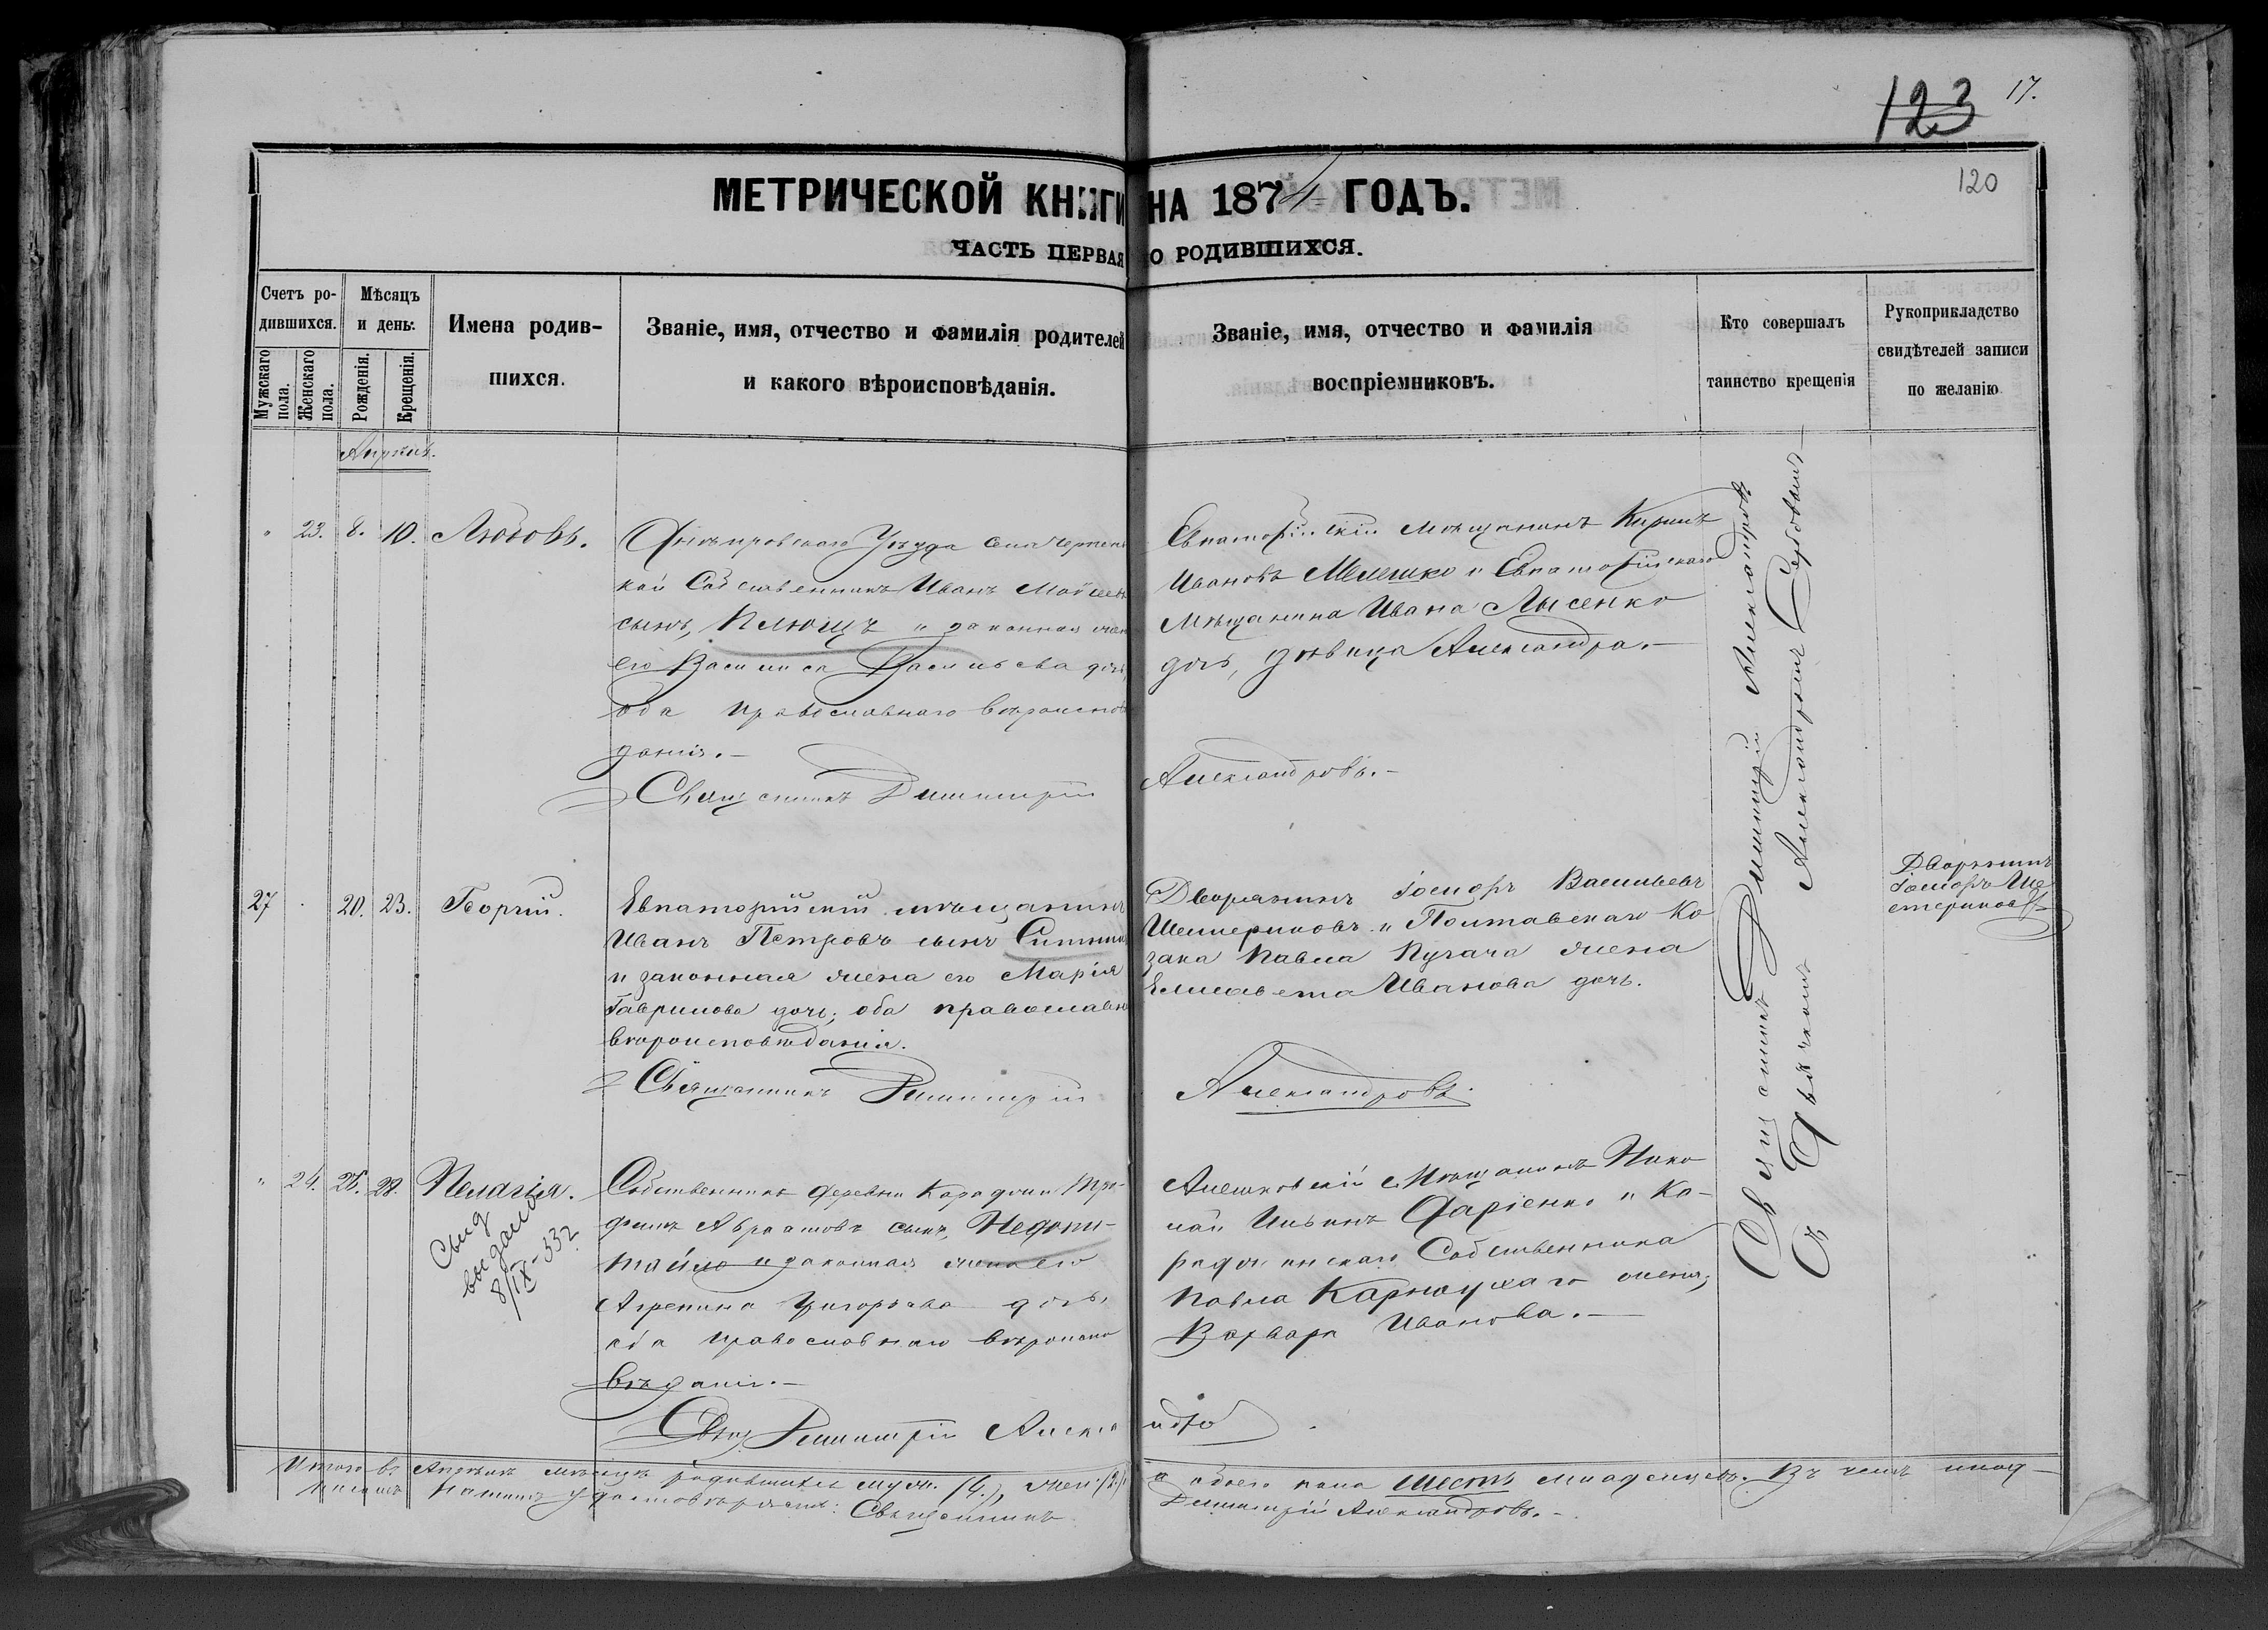 123 17.
120
МЕТРИЧЕСКОЙ КНИГИ НА 1874 ГОДЪ.
ЧАСТЬ ПЕРВАЯ О РОДИВШИХСЯ.
Счетъ ро-
дившихся.
Мужскаго
пола.
Женскаго
пола.
Мѣсяцъ
и день:
Рожденія.
Крещенія.
Имена родив-
шихся.
Званіе, имя, отчество и фамилія родителей
и какого вѣроисповѣданія.
Званіе, имя, отчество и фамилія
воспріемниковъ.
Кто совершалъ
таинство крещенія
Рукоприкладство
свидѣтелей записи
по желанію
Апрѣль.
" 23. 8. 10. Любовь.
Днѣпровскаго Уѣзда села
кой Собственникъ Иванъ
сынъ, Клющъ и законная жен
его Василиса Васильева дочь,
оба православнаго вѣроиспов
данія.-
Священникъ Димитрій Александровъ.-
Евпаторійскій мѣщанинъ Кирилъ
Ивановъ Мелешко и Евпаторійскаго
Мѣщанина Ивана Лысенко
дочь, дѣвица Александра.-
27 20. 23. Георгій.
Евпаторійскій мѣщанинъ
Иванъ Петровъ сынъ
и законная жена его Марія
Гаврилова дочь; оба православн
вѣроисповѣданія.
Священникъ Димитрій Александровъ.
Дворянинъ Васильевъ
Шестериковъ и Полтавскаго Ко
зака Павла Пугача жена
Елисавета Иванова дочь.
Дворянинъ
Ше
стериковъ
" 24. 26. 28. Пелагія.
Свид
выдано
8/IX-332
Собственникъ деревни Караджи Тро-
фимъ Абрамовъ сынъ, Недопи-
тайло и законная жена его
Агрепина Григорьева дочь,
оба православнаго вѣроиспо
вѣданія.-
Свящ Димитрій Александро
Алешковскій Мѣщанинъ Нико
лай Ильинъ и Ка-
раджинскаго Собственника
Павла Карнауха го жена,
Варвара Иванова.-
Священникъ Димитрій Александровъ
съ Дьякономъ Александромъ Сербовымъ
Итого въ Апрѣлѣ мѣсяцѣ родившихся муж. (4.), жен. (2.) а обоего пола шесть младенцевъ. Въ чемъ под-
писомъ нашимъ удостовѣряемъ: Священникъ Димитрій Александровъ.-